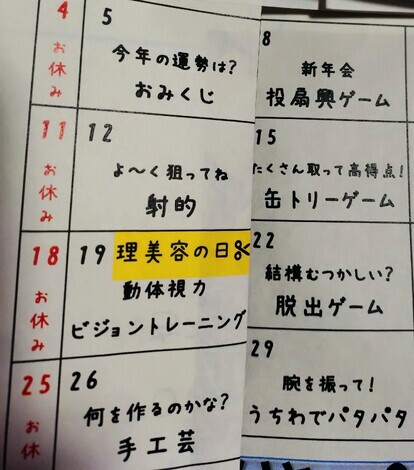 4
お休み
5
今年の運勢は?
おみくじ
8
新年会
投扇興ゲーム
11
お休み
12
よ〜く狙ってね
射的
15
たくさん取って高得点!
缶トリーゲーム
18
お休み
19 理美容の日✂
動体視力
ビジョントレーニング
22
結構むつかしい?
脱出ゲーム
25
お休
26
何を作るのかな?
手工芸
29
腕を振って!
うちわでパタパタ